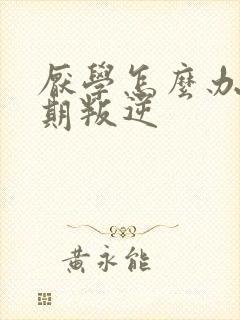 厭學怎麼办
期叛逆
黃永能